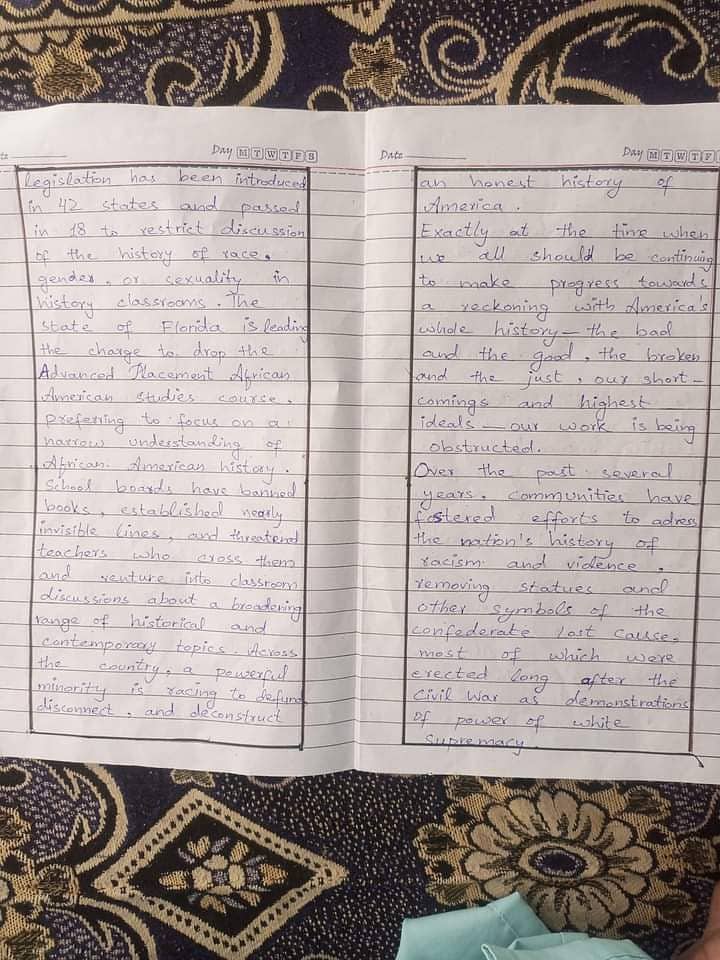 te
Day M T W T F S
Legislation has been introduced
in 42 states and passed
in 18 to restrict discussion
of the history of race,
gender, or sexuality in
history classrooms. The
State of Florida is leading
the charge to drop the
Advanced Placement African
American studies course,
preferring to focus on a
narrow understanding of
African American history.
School boards have banned
books, established nearly
invisible lines, and threatend
teachers who cross them
and venture into classroom
discussions about a broadening
range of historical and
contemporary topics. Across
the country, a powerful
minority is racing to defund,
disconnect, and deconstruct
Date
Day M T W T F
an honest history of
America.
Exactly at the time when
we all should be continuing
to make progress towards
a reckoning with America's
whole history — the bad
and the good, the broken
and the just, our short-
comings and highest
ideals — our work is being
obstructed.
Over the past several
years, communities have
fostered efforts to adress
the nation's history of
racism and vidence,
removing statues and
other symbols of the
confederate Lost cause,
most of which were
erected long after the
Civil War as demonstrations
of power of white
Supremacy.